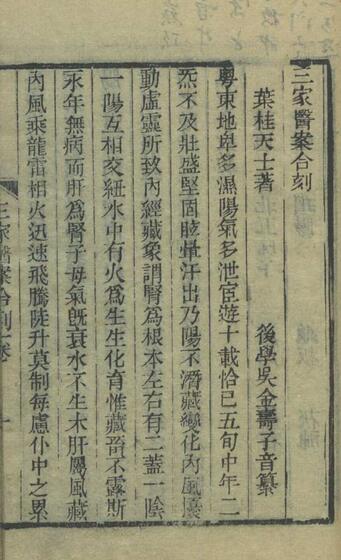 三家醫案合刻
葉桂天士著
後學吳金壽子音纂
粵東地卑多濕陽氣多泄宦遊十載恰已五旬中年二
炁不及壯盛堅固眩暈汗出乃陽不潛藏變化內風驀
動虛靈所致內經藏象謂腎為根本左右有二蓋一陰
一陽互相交紐水中有火為生生化育惟藏而不露斯
永年無病而肝為腎子母氣旣衰水不生木肝屬風藏
內風乘龍雷相火迅速飛騰陡升莫制每慮仆中之累
三家醫案合刻 卷一